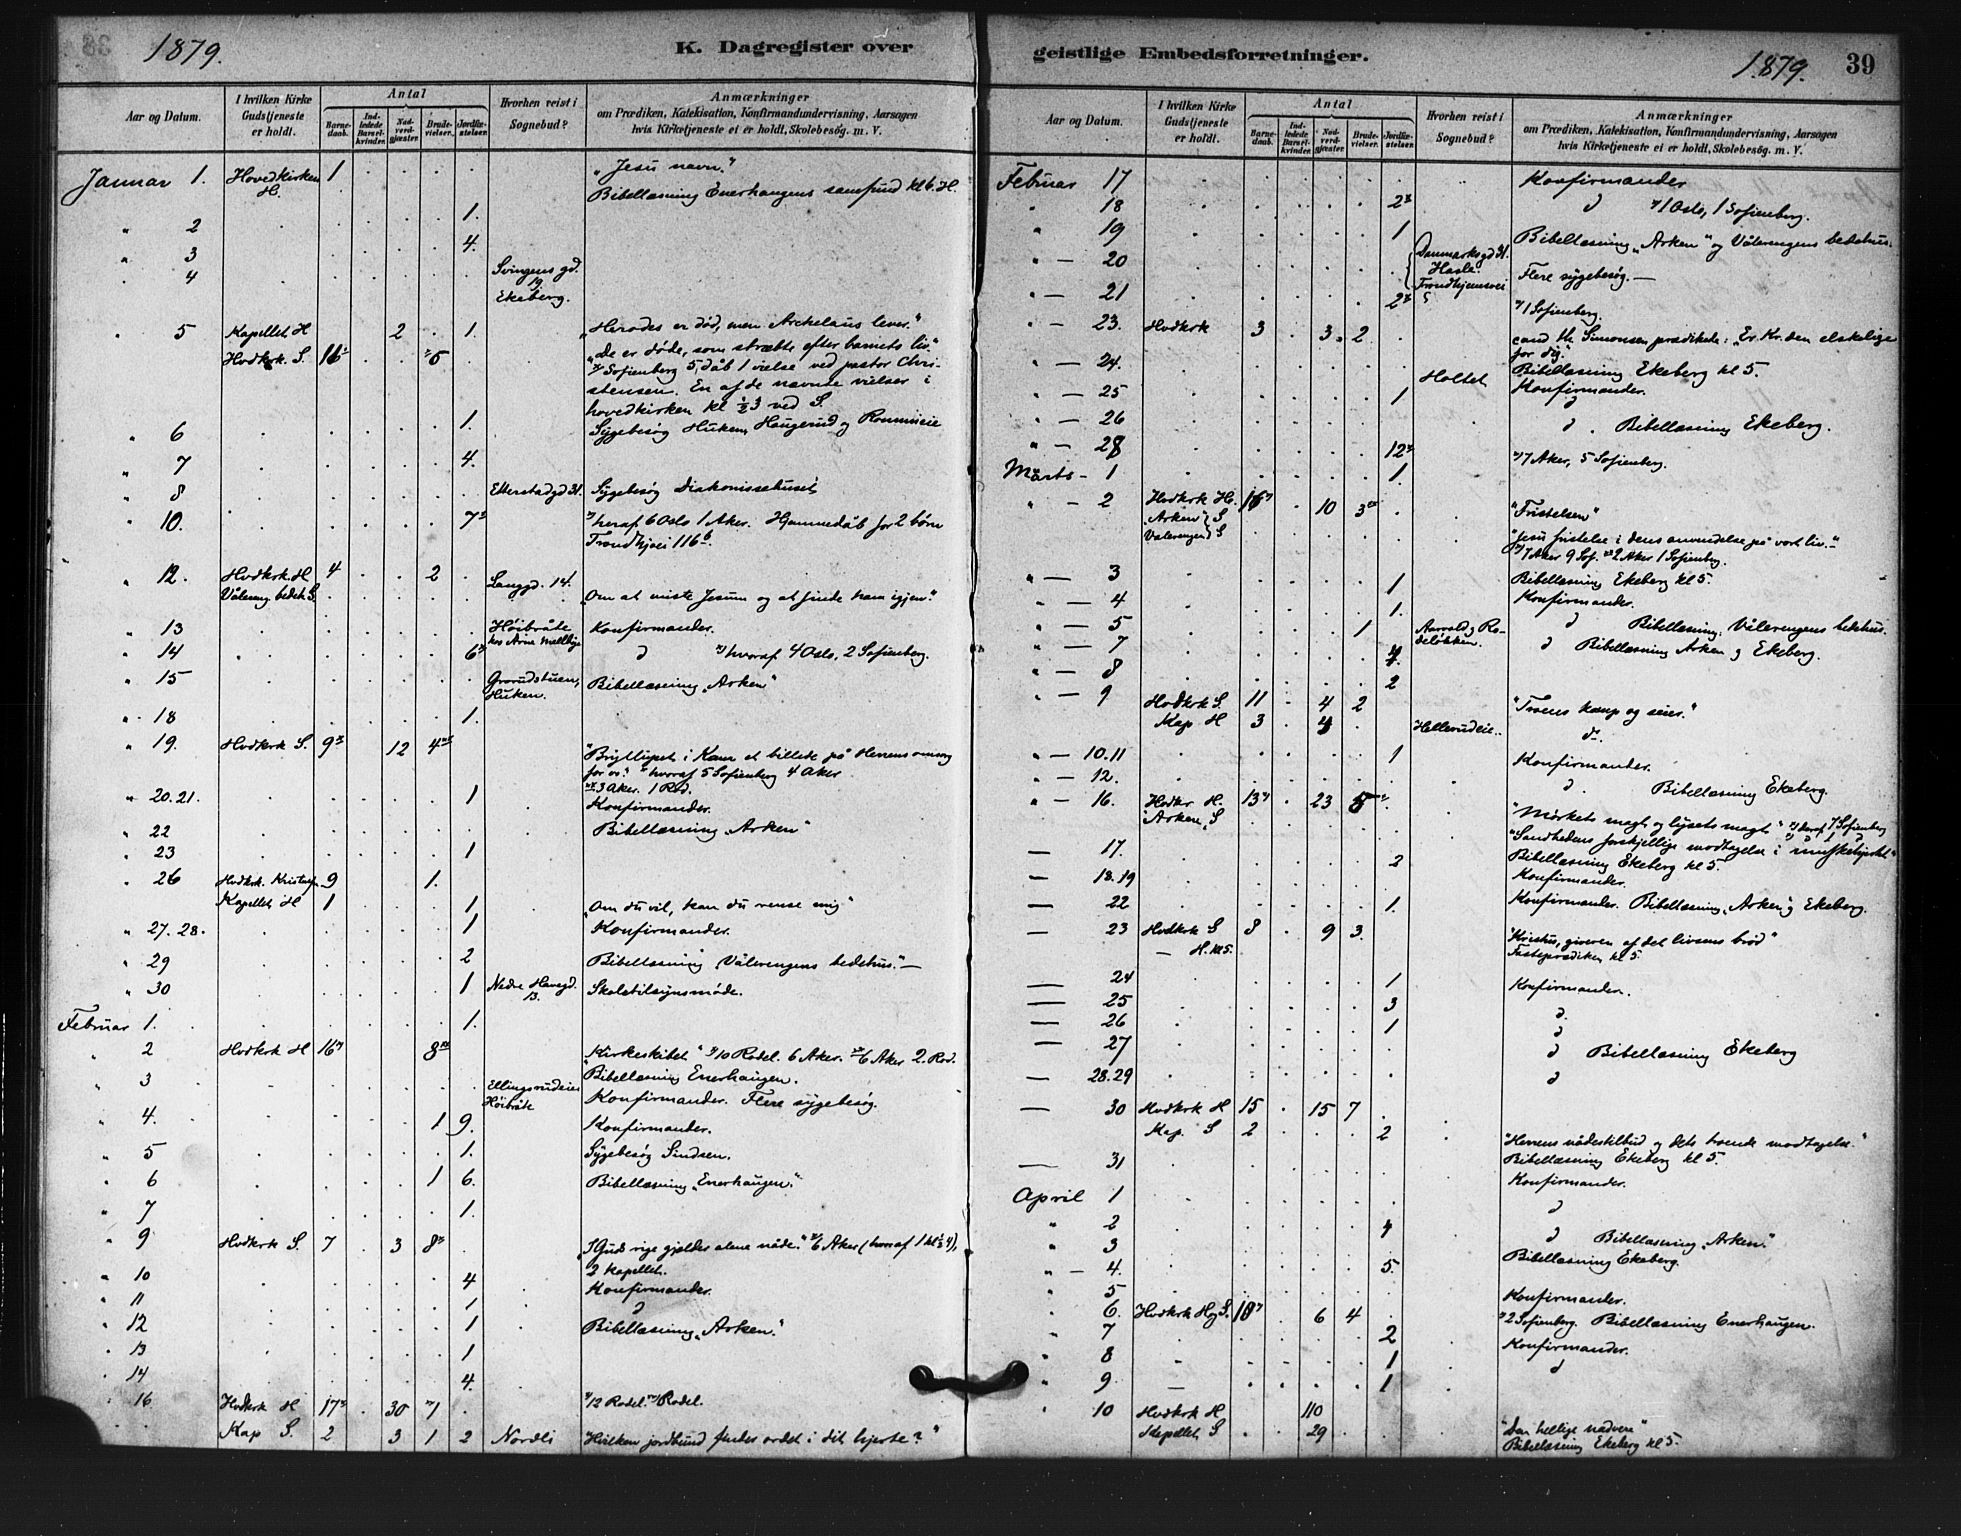 1879.
K. Dagregister over
Aar og Datum.
I hvilken Kirke Gudstjeneste er holdt.
Antal
Barnedaab.
Indledede Barselkvinder.
Nadverdgjæster.
Brudevielser.
Jordfæstelser.
Hvorhen reist i Sognebud?
Anmærkninger
om Prædiken, Katekisation, Konfirmandundervisning, Aarsagen
hvis Kirketjeneste ei er holdt, Skolebesøg. m. V.
Januar 1. Hovedkirken H. 1 "Jesu navn."
Bibellæsning Enerhaugens samfund kl 6. H.
" 2 1.
" 3 4.
" 4 Svingens gd. 19
Ekeberg.
" 5 Kapellet H 2 1. "Herodes er død, men Arkelaus lever."
Hvdkrk. S. 16 5 "De er døde, som stræbte efter barnets liv."
Sofienberg 5 dåb 1 vielse ved pastor Chri-
stensen. En af de nævnte vielser i
hovedkirken kl ½3 ved S.
" 6 1. Sygebesøg Huken, Haugerud og
" 7 4.
" 8 Etterstadgd 31. Sygebesøg Diakonissehuset
" 10. 7 heraf 6 Oslo 1 Aker. Hjemmedåb for 2 børn
Trondhjvei 116 b.
" 12. Hvdkrk. H 4 2 Langgd. 14.
Vålereng. bedeh S. "Om at miste Jesum og at finde ham igjen."
" 13 Høibråte Konfirmander.
" 14 6 d hvoraf 4 Oslo, 2 Sofienberg.
" 15 Grorudstuen, Huken. Bibellæsning "Arken"
" 18 1.
" 19. Hvdkrk S. 9 12 4 "Bryllupet i Kana et billede på Herrens omsorg
for os." hvoraf 5 Sofienberg 4 Aker
3 Aker. 1 Rod.
" 20.21. 1 Konfirmander.
" 22 Bibellæsning "Arken"
" 23 1
" 26 Hvdkrk. 9 1.
Kapellet H 1 1 "Om du vil, kan du rense mig"
" 27.28. 1 Konfirmander.
" 29 2 Bibellæsning "Vålerengens bedehus." —
" 30 1 Nedre Havegd. 13. Skoletilsynsmøde.
Februar 1. 1.
" 2 Hvdkrk H 16 8 "Kirkeskibet" 10 Rodel. 6 Aker. 6 Aker 2. Rod.
Bibellæsning Enerhaugen.
" 3 Ellingsrudeie Høibråte Konfirmander. Flere sygebesøg.
" 4. 1 9. Konfirmander.
" 5 1. Sygebesøg Sindsen.
" 6 1 6. Bibellæsning "Enerhaugen."
" 7 1.
" 9 Hvdkrk S. 7 3 8 "I Guds rige gjælder alene nåde." 6 Aker (hvoraf 1 kl ½4),
2 kapellet.
" 10 4 Konfirmander.
" 11 1 d
" 12 1 Bibellæsning "Arken."
" 13 1
" 14 4.
" 16 Hvdkrk H 17 30 1 12 Rodel. 1 Rodel.
Kap S. 2 3 1 2 Nordli Hvilken jordbund finder ordet i dit hjerte?"
geistlige Embedsforretninger.
1879.
39
Aar og Datum.
I hvilken Kirke Gudstjeneste er holdt.
Antal
Barnedaab.
Indledede Barselkvinder.
Nadverdgjæster.
Brudevielser.
Jordfæstelser.
Hvorhen reist i Sognebud?
Anmærkninger
om Prædiken, Katekisation, Konfirmandundervisning, Aarsagen
hvis Kirketjeneste ei er holdt, Skolebesög. m. V.
Februar 17 Konfirmander
" 18 2 d 1 Oslo, 1 Sofienberg.
" 19 1 Bibellæsning "Arken" og Vålerengens bedehus.
" — 20 Danmarksgd 31. Hasle. Flere sygebesøg. —
" — 21 2 Trondhjemsvei 5 1 Sofienberg.
" — 23. Hvdkrk 3 3 2 cand th. Simonsen prædikede: "Er Kr. den elskelige
for dig."
" — 24. Bibellæsning Ekeberg kl 5.
" — 25 1 Holtet Konfirmander.
" — 26 d. Bibellæsning Ekeberg.
" — 28 12 7 Aker, 5 Sofienberg.
Marts - 1 1.
" — 2 Hvdkrk H. 16 10 3 "Fristelsen"
"Arken" S
Valerengen S "Jesu fristelse i dens anvendelse på vort liv."
7 Aker 9 Sof. 2 Aker 1 Sofienberg.
" — 3 1 Bibellæsning Ekeberg kl 5.
" — 4 1. Konfirmander.
" — 5 1 Aarvold og Ro-
deløkken. d Bibellæsning: Vålerengens bedehus.
" — 7 4 d Bibellæsning Arken og Ekeberg.
" — 8 2
" — 9 Hvdkrk S. 11 4 2 "Troens kamp og seier."
Kap H 3 4 Hellerudeie. d.
" — 10.11 1 Konfirmander.
" — 12. d. Bibellæsning Ekeberg.
" — 16. Hvdkr H. 13 23 5 "Mörkets magt og lysets magt" deraf 7 Sofienberg
"Arken" S "Sandhedens forskjellige modtagelse i
— 17. 2 Bibellæsning Ekeberg kl 5.
— 18.19 Konfirmander.
— 22 1. Konfirmander. Bibellæsning "Arken" og Ekeberg.
— 23 Hvdkrk S 8 9 3. "Kristus, giveren af det livsens brød"
— H. kl 5. Fasteprædiken kl 5.
— 24 1 Konfirmander.
— 25 3 d.
— 26 1 d
— 27 d Bibellæsning Ekeberg
— 28.29 d
— 30 Hvdkrk H 15 15 7
Kap. S 2 2 "Herrens nådestilbud og dets troende modtagelse."
— 31 Bibellæsning Ekeberg kl 5.
Konfirmander.
April 1 d
" 2 4
" 3 d Bibellæsning "Arken."
" — 4. 5. Bibellæsning Ekeberg.
" 5 Konfirmander.
" 6. Hvdkrk H og S. 10 6 4 2 Sofienberg. Bibellæsning Enerhaugen.
" 7 2 Konfirmander.
" 8 1 d
" 9 1
" 10 Hvdkrk H 110
Kapellet S 29 "Den hellige nadvere"
Bibellæsning Ekeberg kl 5.